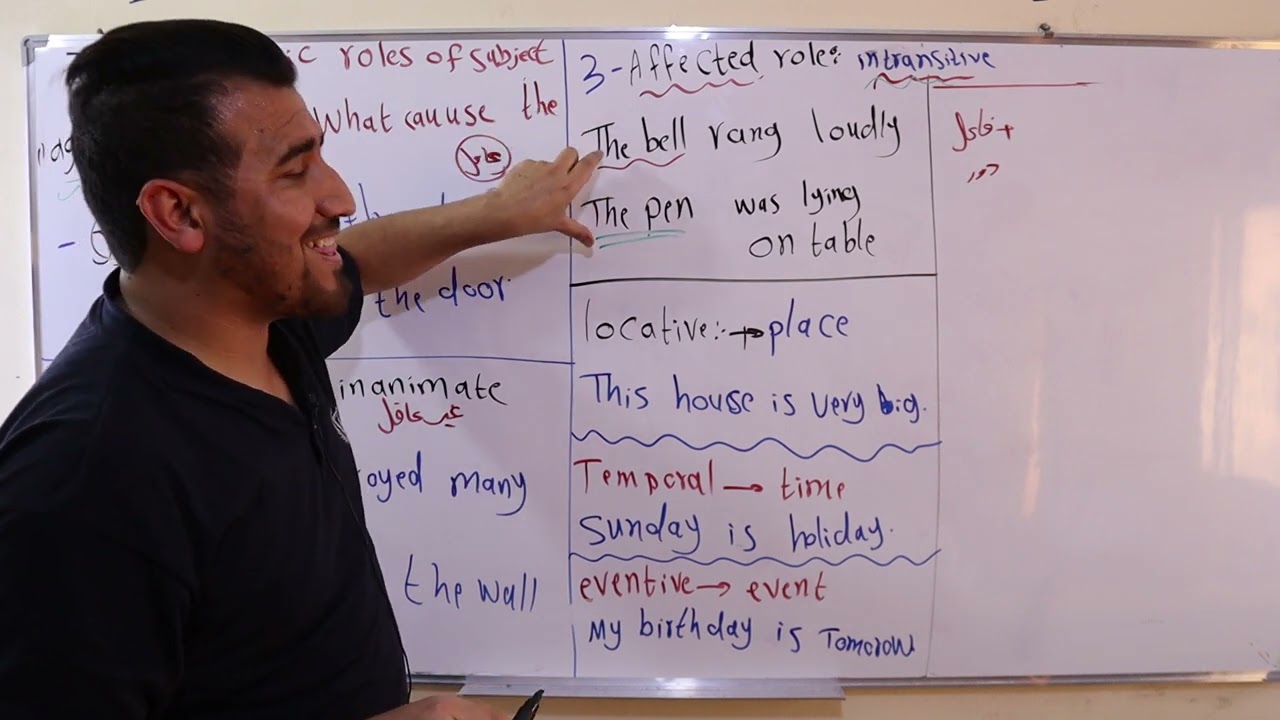 ic roles of subject
What cauuse the
عاقل
the door.
inanimate
غير عاقل
oyed many
the wall
3-Affected role: intransitive
The bell rang loudly
The pen was lying
on table
locative: → place
This house is very big.
Temporal → time
Sunday is holiday.
eventive → event
My birthday is Tomorow